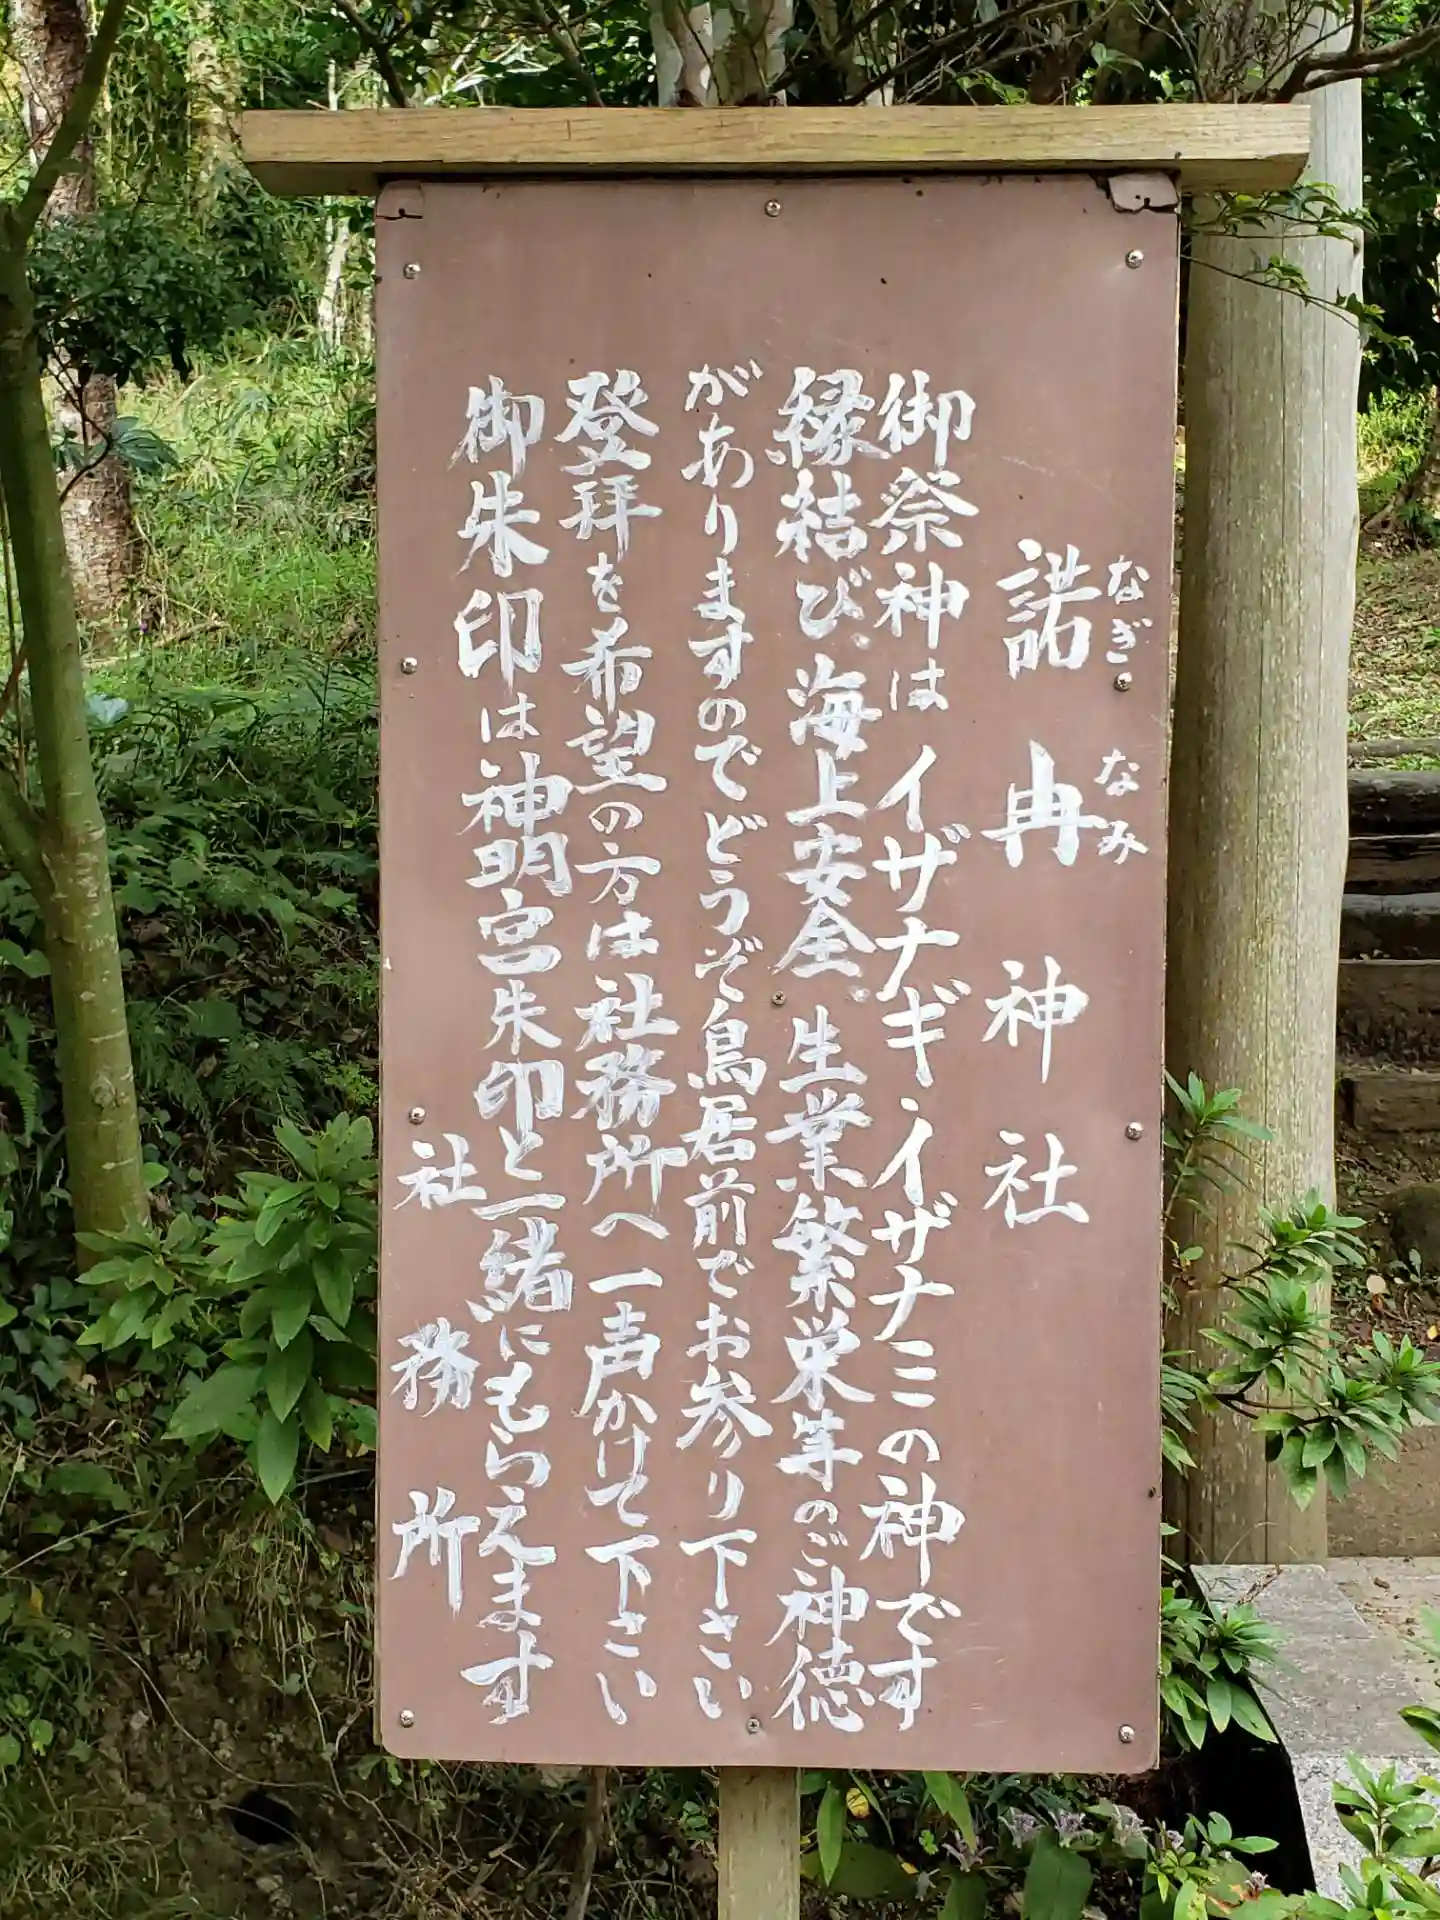 諾冉神社
なぎなみ
御祭神はイザナギ・イザナミの神です
縁結び、海上安全、生業繁栄等のご神徳
がありますのでどうぞ鳥居前でお参り下さい
登拜を希望の方は社務所へ一声かけて下さい
御朱印は神明宮朱印と一緒にもらえます
社務所